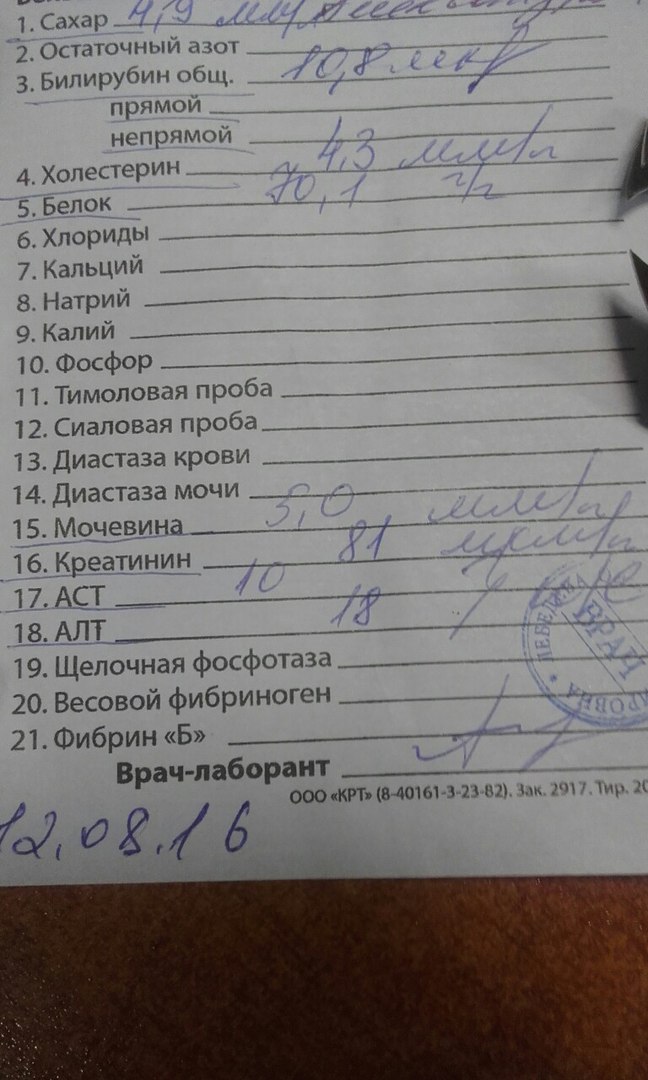 1. Сахар 4,9
2. Остаточный азот
3. Билирубин общ. 10,8
прямой
непрямой
4. Холестерин 4,3 ммл/л
5. Белок 70,1 г/л
6. Хлориды
7. Кальций
8. Натрий
9. Калий
10. Фосфор
11. Тимоловая проба
12. Сиаловая проба
13. Диастаза крови
14. Диастаза мочи
15. Мочевина 5,0 ммл/л
16. Креатинин 81 мкмл/л
17. АСТ 10
18. АЛТ 18
19. Щелочная фосфотаза
20. Весовой фибриноген
21. Фибрин «Б»
Врач-лаборант
ООО «КРТ» (8-40161-3-23-82). Зак. 2917. Тир. 20
12.08.16
ВРАЧ